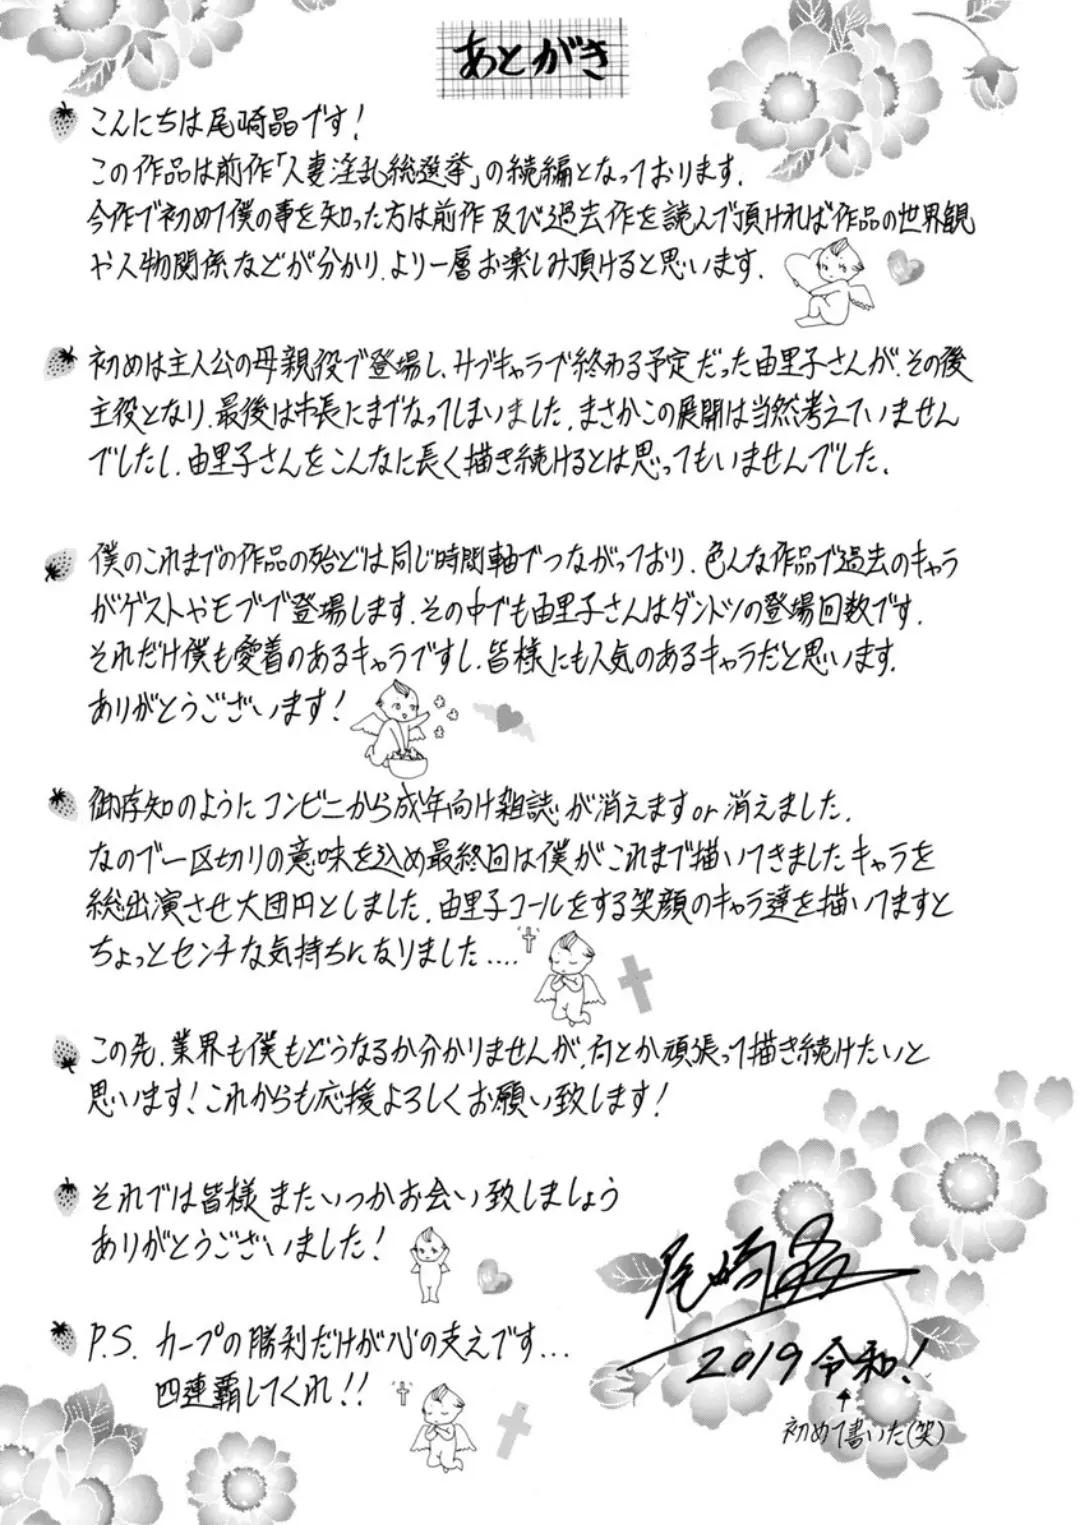 あとがき
こんにちは尾崎晶です!
この作品は前作「人妻淫乱総選挙」の続編となっております.
今作で初めて僕の事を知った方は前作及び過去作を読んで頂ければ作品の世界観
や人物関係などが分かり.より一層お楽しみ頂けると思います.
初めは主人公の母親役で登場し.サブキャラで終わる予定だった由里子さんが.その後
主役となり.最後は市長にまでなってしまいました.まさかこの展開は当然考えていません
でしたし.由里子さんをこんなに長く描き続けるとは思ってもいませんでした.
僕のこれまでの作品の殆どは同じ時間軸でつながっており.色んな作品で過去のキャラ
がゲストやモブで登場します.その中でも由里子さんはダントツの登場回数です.
それだけ僕も愛着のあるキャラですし.皆様にも人気のあるキャラだと思います.
ありがとうございます!
御存知のようにコンビニから成年向け雑誌が消えますor消えました.
なので一区切りの意味を込め最終回は僕がこれまで描いてきましたキャラを
総出演させ大団円としました.由里子コールをする笑顔のキャラ達を描いてますと
ちょっとセンチな気持ちになりました....
この先.業界も僕もどうなるか分かりませんが.何とか頑張って描き続けたいと
思います!これからも応援よろしくお願い致します!
それでは皆様またいつかお会い致しましょう
ありがとうございました!
P.S. カープの勝利だけが心の支えです...
四連覇してくれ!!
尾崎晶
2019 令和!
初めて書いた(笑)